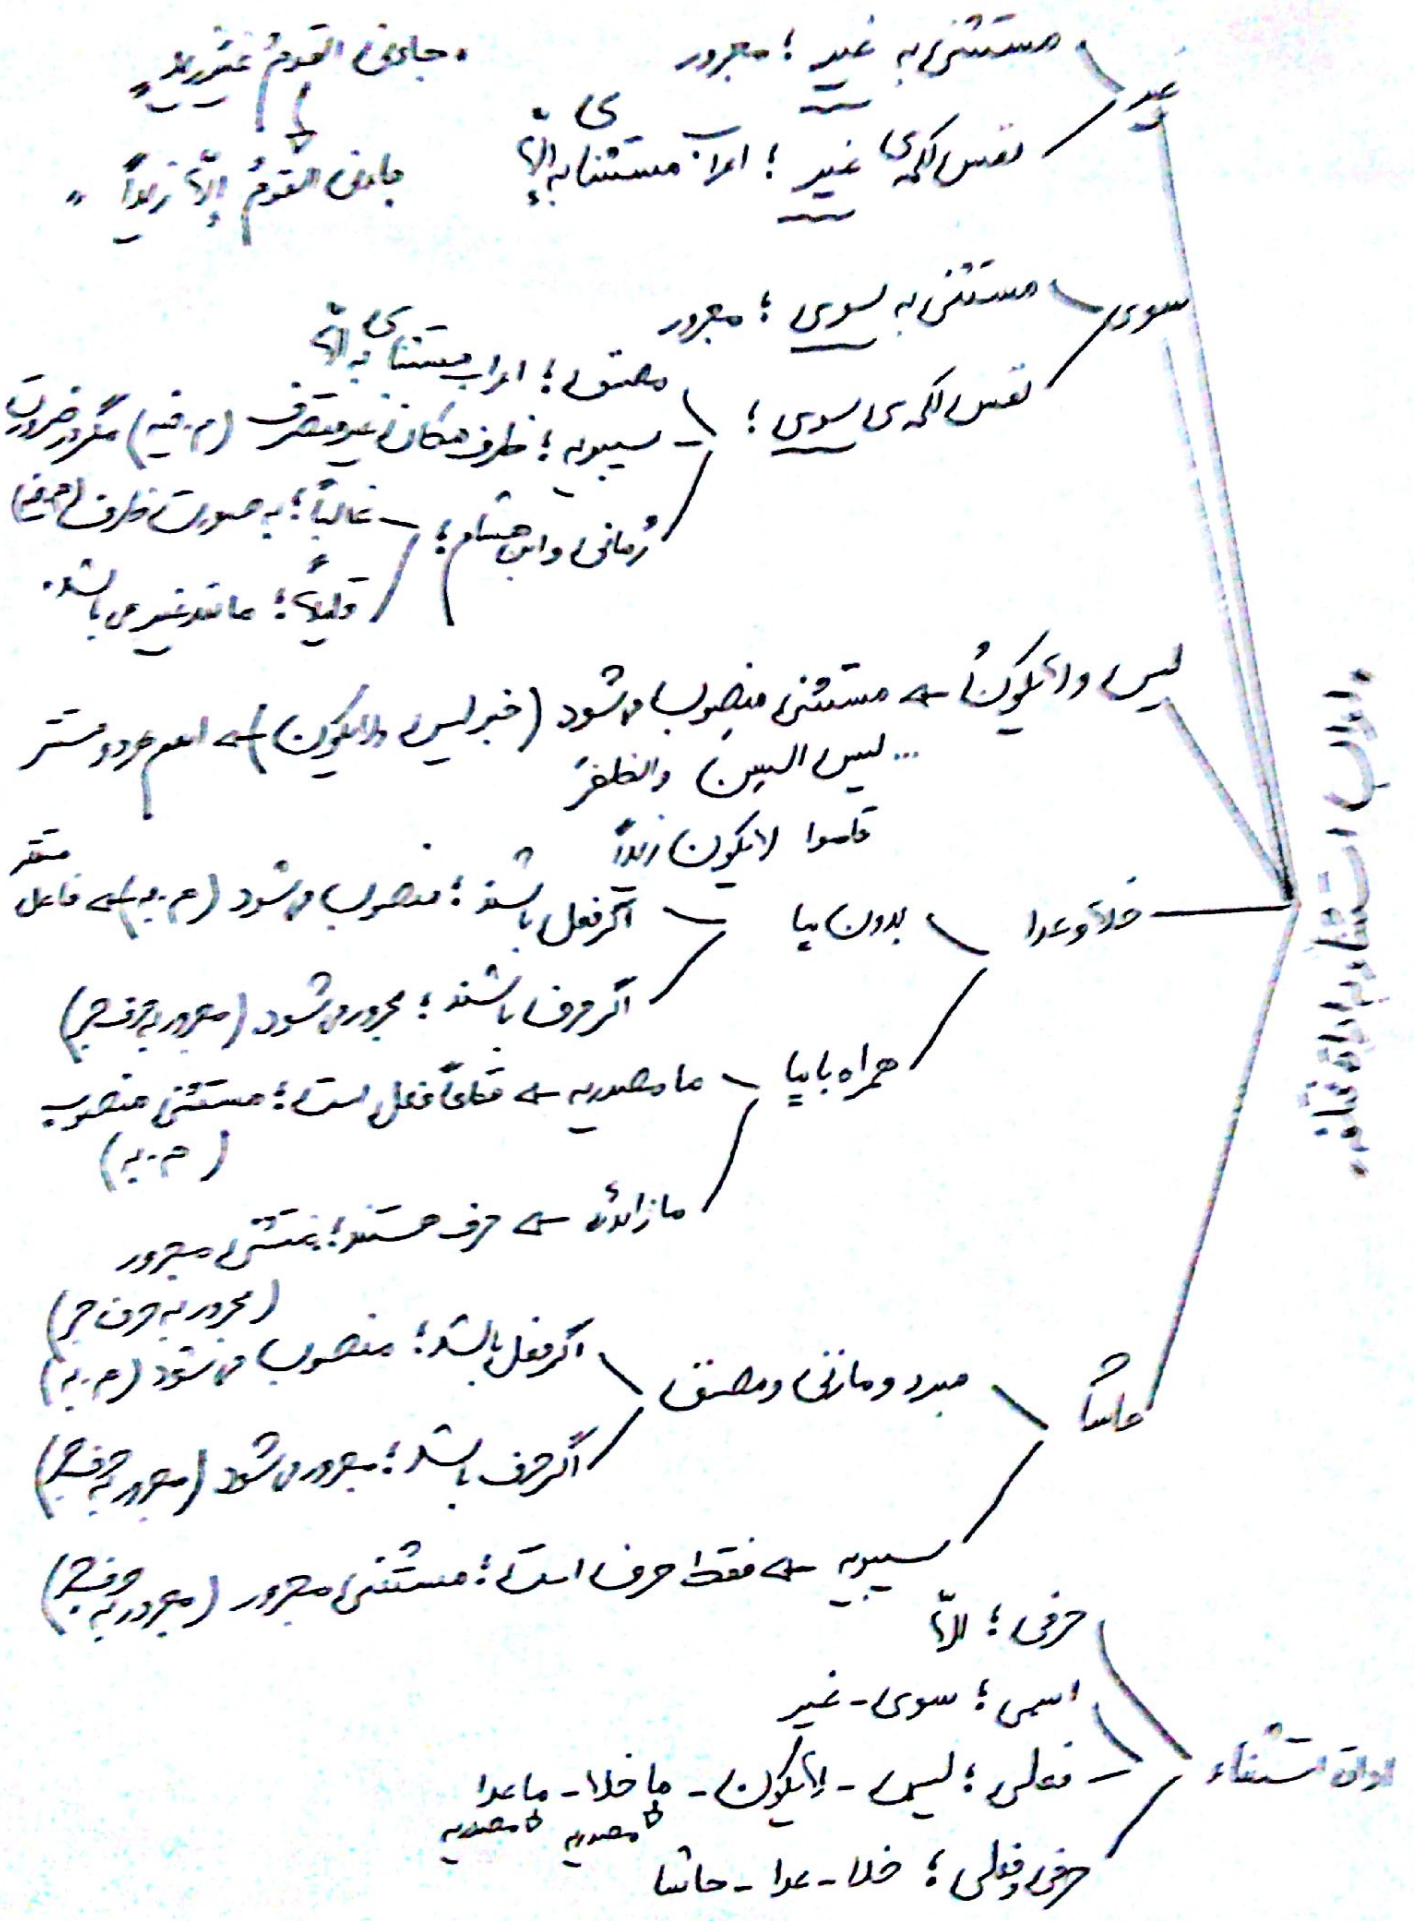 مستثنی به غیر ؛ مجرور
«جاءنی القومُ غیرَ زیدٍ»
غیر
نفس کلمه‌ی غیر ؛ اعراب مستثنای به إلّا
جاءنی القومُ إلّا زیداً»
سوی
مستثنی به سوی ؛ مجرور
نفس کلمه‌ی سوی ؛
مصنف ؛ اعراب مستثنای به إلّا
سیبویه ؛ ظرف مکان غیرمتصرف (م.فیه) مگر در ضرورت
رُمانی و ابن هشام ؛
غالباً ؛ به صورت ظرف (م.فیه)
قلیلاً ؛ مانند غیر می باشد.
لیس و لایکونُ ← مستثنی منصوب می شود (خبر لیس و لایکون) ← اسم هر دو مستتر
... لیس السِنَّ والظفرَ
قاموا لایکون زیداً
«اعراب استثناء به ادوات
خلا و عدا
بدون ما
اگر فعل باشند ؛ منصوب می شود (م.به) ← فاعل مستتر
اگر حرف باشند ؛ مجرور می شود (مجرور به حرف جر)
همراه با ما
ما مصدریه ← قطعاً فعل است ؛ مستثنی منصوب
(م.به)
ما زائده ← حرف هستند ؛ مستثنی مجرور
(مجرور به حرف جر)
حاشا
مبرد و مازنی و مصنف
اگر فعل باشد ؛ منصوب می شود (م.به)
اگر حرف باشد ؛ مجرور می شود (مجرور به حرف جر)
سیبویه ← فقط حرف است ؛ مستثنی مجرور (مجرور به حرف جر)
ادوات استثناء
حرفی ؛ إلّا
اسمی ؛ سوی - غیر
فعلی ؛ لیس - لایکون - ما خلا - ما عدا
مصدریه مصدریه
حرفی و فعلی ؛ خلا - عدا - حاشا